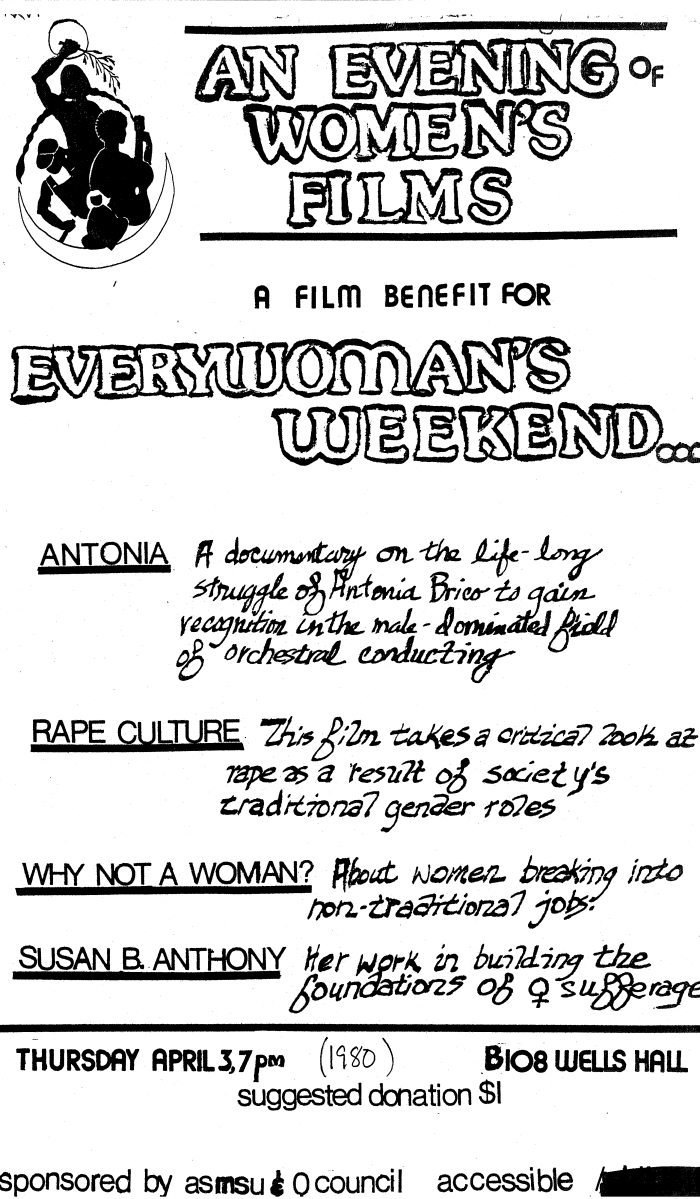 AN EVENING OF
WOMEN'S
FILMS
A FILM BENEFIT FOR
EVERYWOMAN'S
WEEKEND...
ANTONIA A documentary on the life-long
struggle of Antonia Brico to gain
recognition in the male-dominated field
of orchestral conducting
RAPE CULTURE This film takes a critical look at
rape as a result of society's
traditional gender roles
WHY NOT A WOMAN? About women breaking into
non-traditional jobs.
SUSAN B. ANTHONY Her work in building the
foundations of ♀ sufferage
THURSDAY APRIL 3, 7pm (1980) B108 WELLS HALL
suggested donation $1
sponsored by asmsu & O council accessible